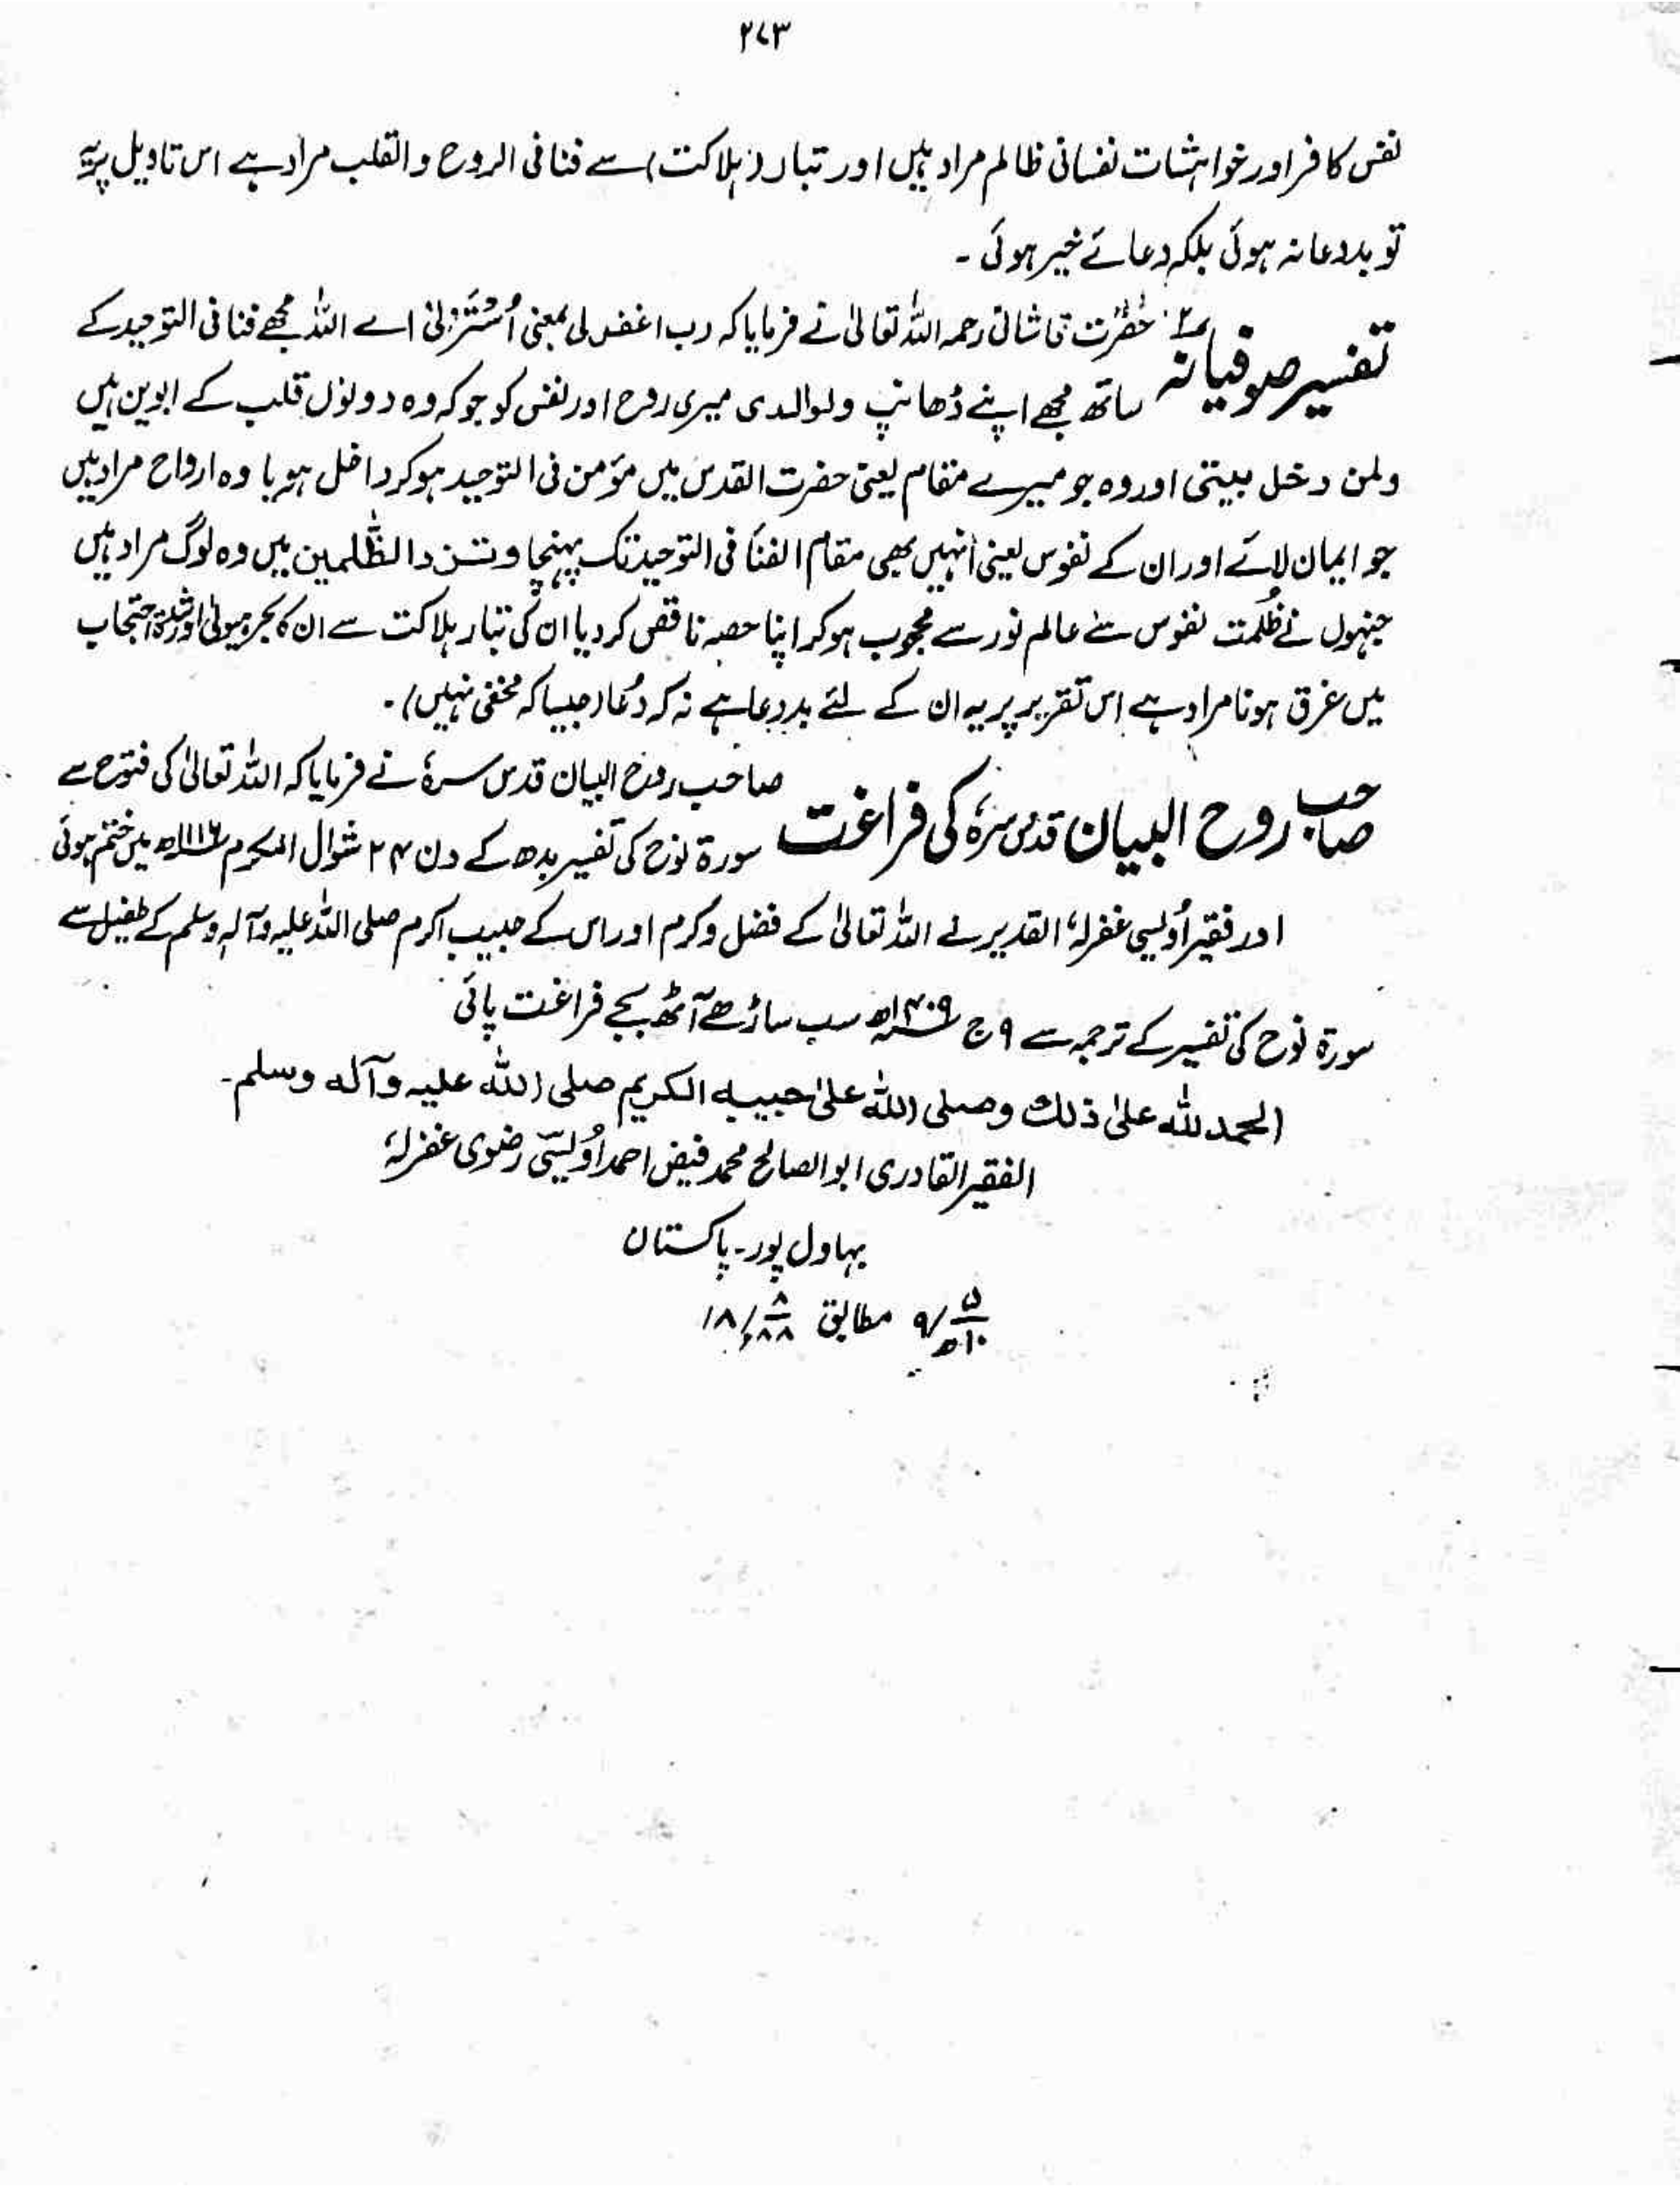 ۲۷۳
نفس کافر اور خواہشات نفسانی ظالم مراد ہیں اور تبار (ہلاکت) سے فنا فی الروح والقلب مراد ہے اس تاویل پریہ
تو بددعا نہ ہوئی بلکہ دعائے خیر ہوئی ۔
تفسیر صوفیانہ حضرت قاشانی رحمہ اللہ تعالیٰ نے فرمایا کہ رب اغفر لی بمعنی اُسْتُرْنِیْ اے اللہ مجھے فنا فی التوحید کے
ساتھ مجھے اپنے ڈھانپ ولوالدی میری روح اور نفس کو جو کہ وہ دونوں قلب کے ابوین ہیں
ولمن دخل بیتی اور وہ جو میرے مقام یعنی حضرت القدس میں مؤمن فی التوحید ہو کر داخل ہو یا وہ ارواح مراد ہیں
جو ایمان لائے اور ان کے نفوس یعنی اُنہیں بھی مقام الفنا فی التوحید تک پہنچا و تزد الظّٰلمین میں وہ لوگ مراد ہیں
جنہوں نے ظُلمت نفوس سے عالم نور سے محجوب ہو کر اپنا حصہ ناقص کر دیا ان کی تبار ہلاکت سے ان کا بحر ہیولیٰ اور شدۃ احتجاب
میں غرق ہونا مراد ہے اس تقریر پر یہ ان کے لئے بددعا ہے نہ کہ دُعا (جیسا کہ مخفی نہیں) ۔
صاحب روح البیان قدس سرہٗ کی فراغت صاحب روح البیان قدس سرہٗ نے فرمایا کہ اللہ تعالیٰ کی فتوح سے
سورۃ نوح کی تفسیر بدھ کے دن ۲۴ شوال المکرم ۱۱۱۶ھ میں ختم ہوئی
اور فقیر اُویسی غفرلہٗ القدیر نے اللہ تعالیٰ کے فضل و کرم اور اس کے حبیب اکرم صلی اللہ علیہ وآلہٖ وسلم کے طفیل سے
سورۃ نوح کی تفسیر کے ترجمہ سے ۹ ج ۱۴۰۹ھ سب ساڑھے آٹھ بجے فراغت پائی
الحمد للہ علیٰ ذلک وصلی اللہ علیٰ حبیبہ الکریم صلی اللہ علیہ وآلہ وسلم۔
الفقیر القادری ابوالصالح محمد فیض احمد اُویسی رضوی غفرلہٗ
بہاول پور۔ پاکستان
۹/۵/۱۰ھ مطابق ۱۸/۸/۸۸ء